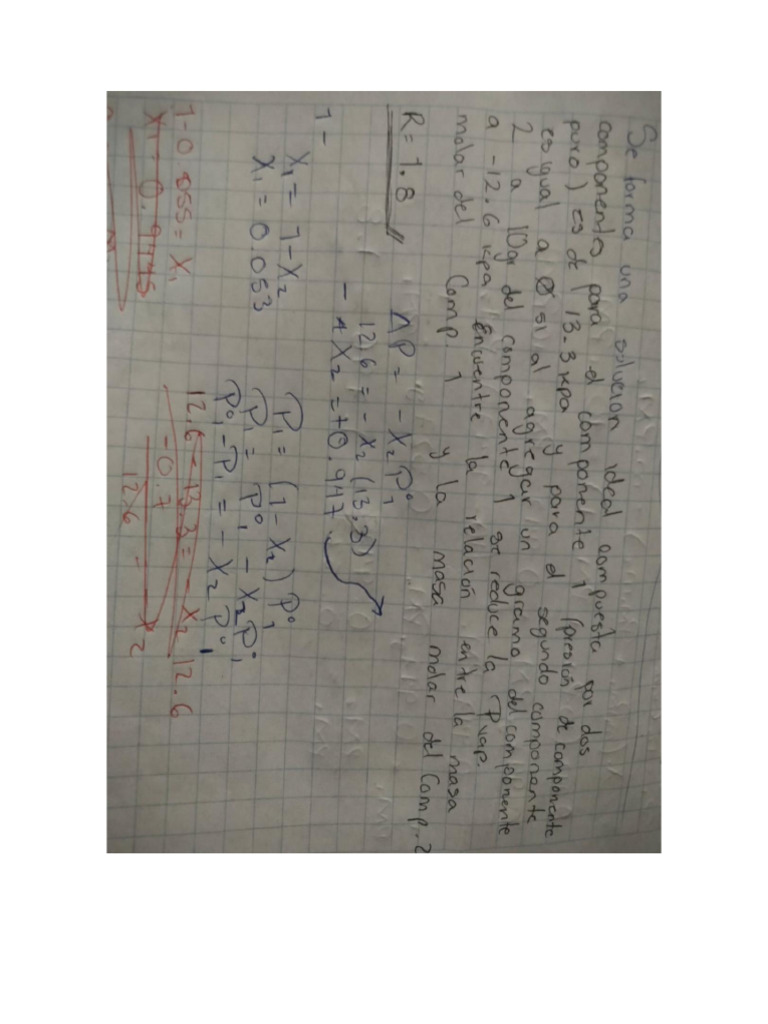 Se forma una solución ideal compuesta por dos
componentes para el componente 1 (presión de componente
puro) es de 13.3 kpa y para el segundo componente
es igual a 0 si al agregar un gramo del componente
2 a 10gr del componente 1 se reduce la Pvap.
a -12.6 kpa Encuentre la relación entre la masa
molar del Comp 1 y la masa molar del Comp. 2
R= 1.8
ΔP = - X₂P°₁
12.6 = - X₂ (13.3)
- + X₂ = +0.947
1 -
X₁ = 1-X₂
X₁ = 0.053
P₁ = (1 - X₂) P°₁
P₁ = P°₁ - X₂P°₁
P°₁-P₁ = - X₂ P°₁
12.6 - 13.3 = - X₂ 12.6
-0.7
12.6
X₂
1-0.055 = X₁
X₁ = 0.9445